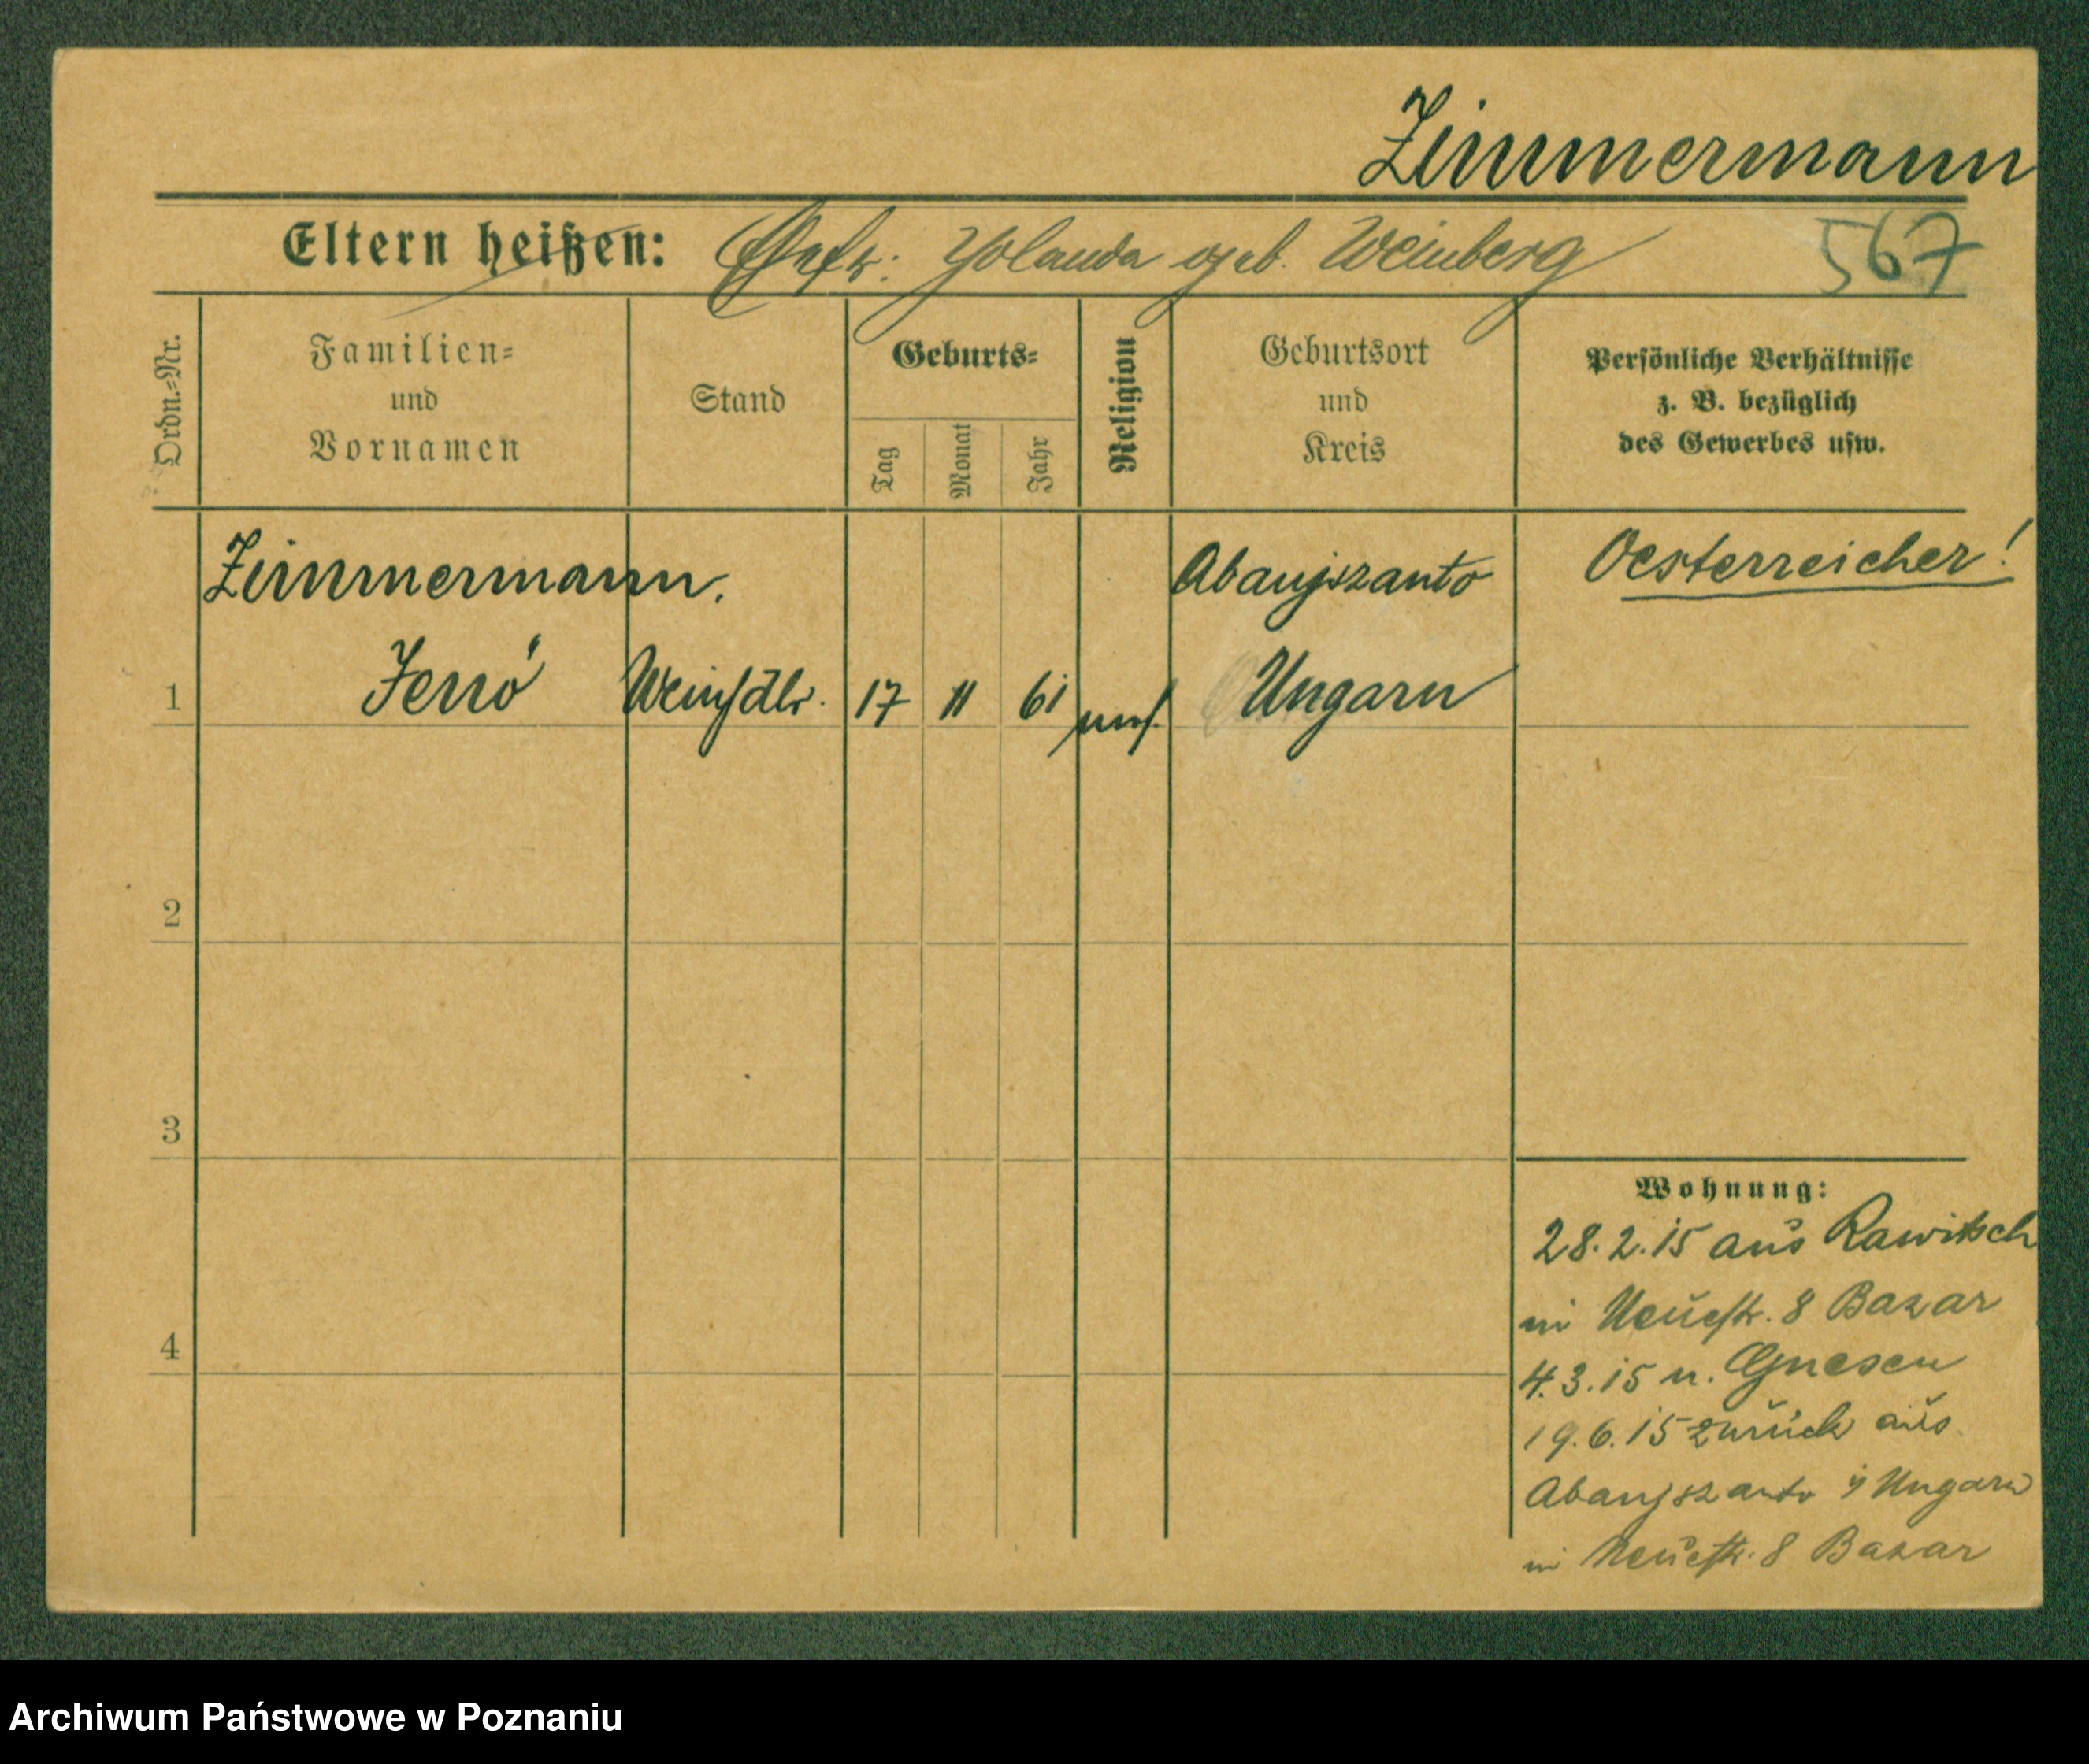 Zimmermann
Eltern heißen: Ehefr: Yolanda geb. Weinberg 567
Ordn.-Nr.
Familien-
und
Vornamen
Stand
Geburts-
Tag
Monat
Jahr
Religion
Geburtsort
und
Kreis
Persönliche Verhältnisse
z. B. bezüglich
des Gewerbes usw.
Zimmermann. Abaujszanto Oesterreicher!
1 Jenő Weinhdlr. 17 11 61 mos. Ungarn
2
3
4
Wohnung:
28.2.15 aus Rawitsch
in Neuestr. 8 Bazar
4.3.15 n. Gnesen
19.6.15 zurück aus
Abaujszanto i/ Ungarn
in Neuestr. 8 Bazar
Archiwum Państwowe w Poznaniu